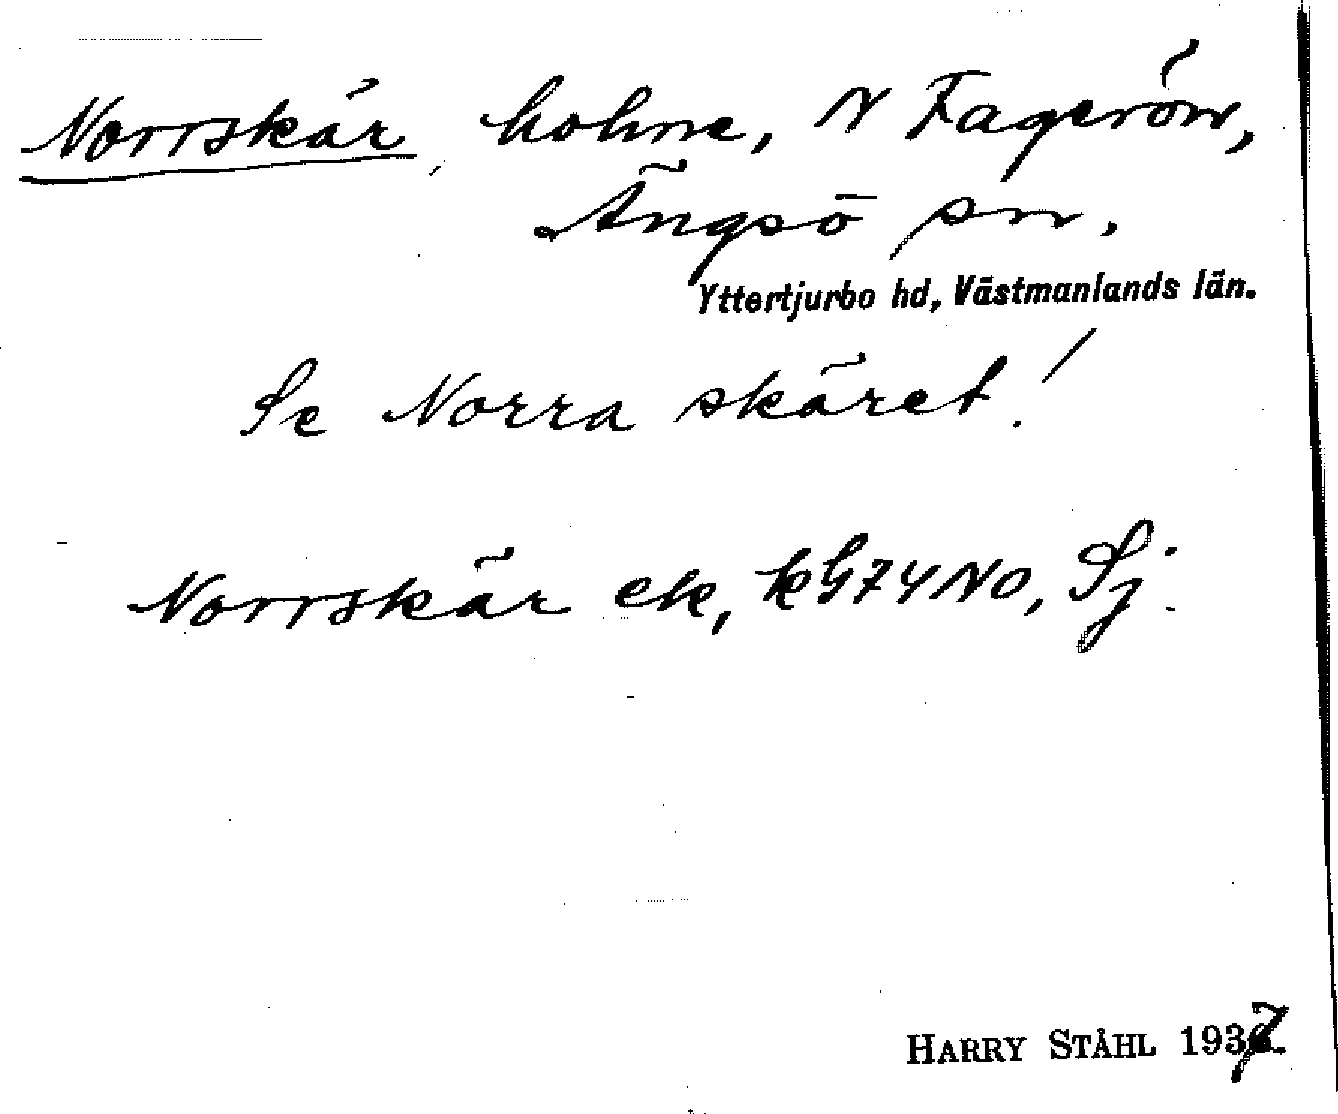 Norrskär, holme, N Fagerön,
Ängsö sn.
Yttertjurbo hd, Västmanlands län.
Se Norra skäret!
Norrskär ek, kG74NO, Sj.
HARRY STÅHL 1937.